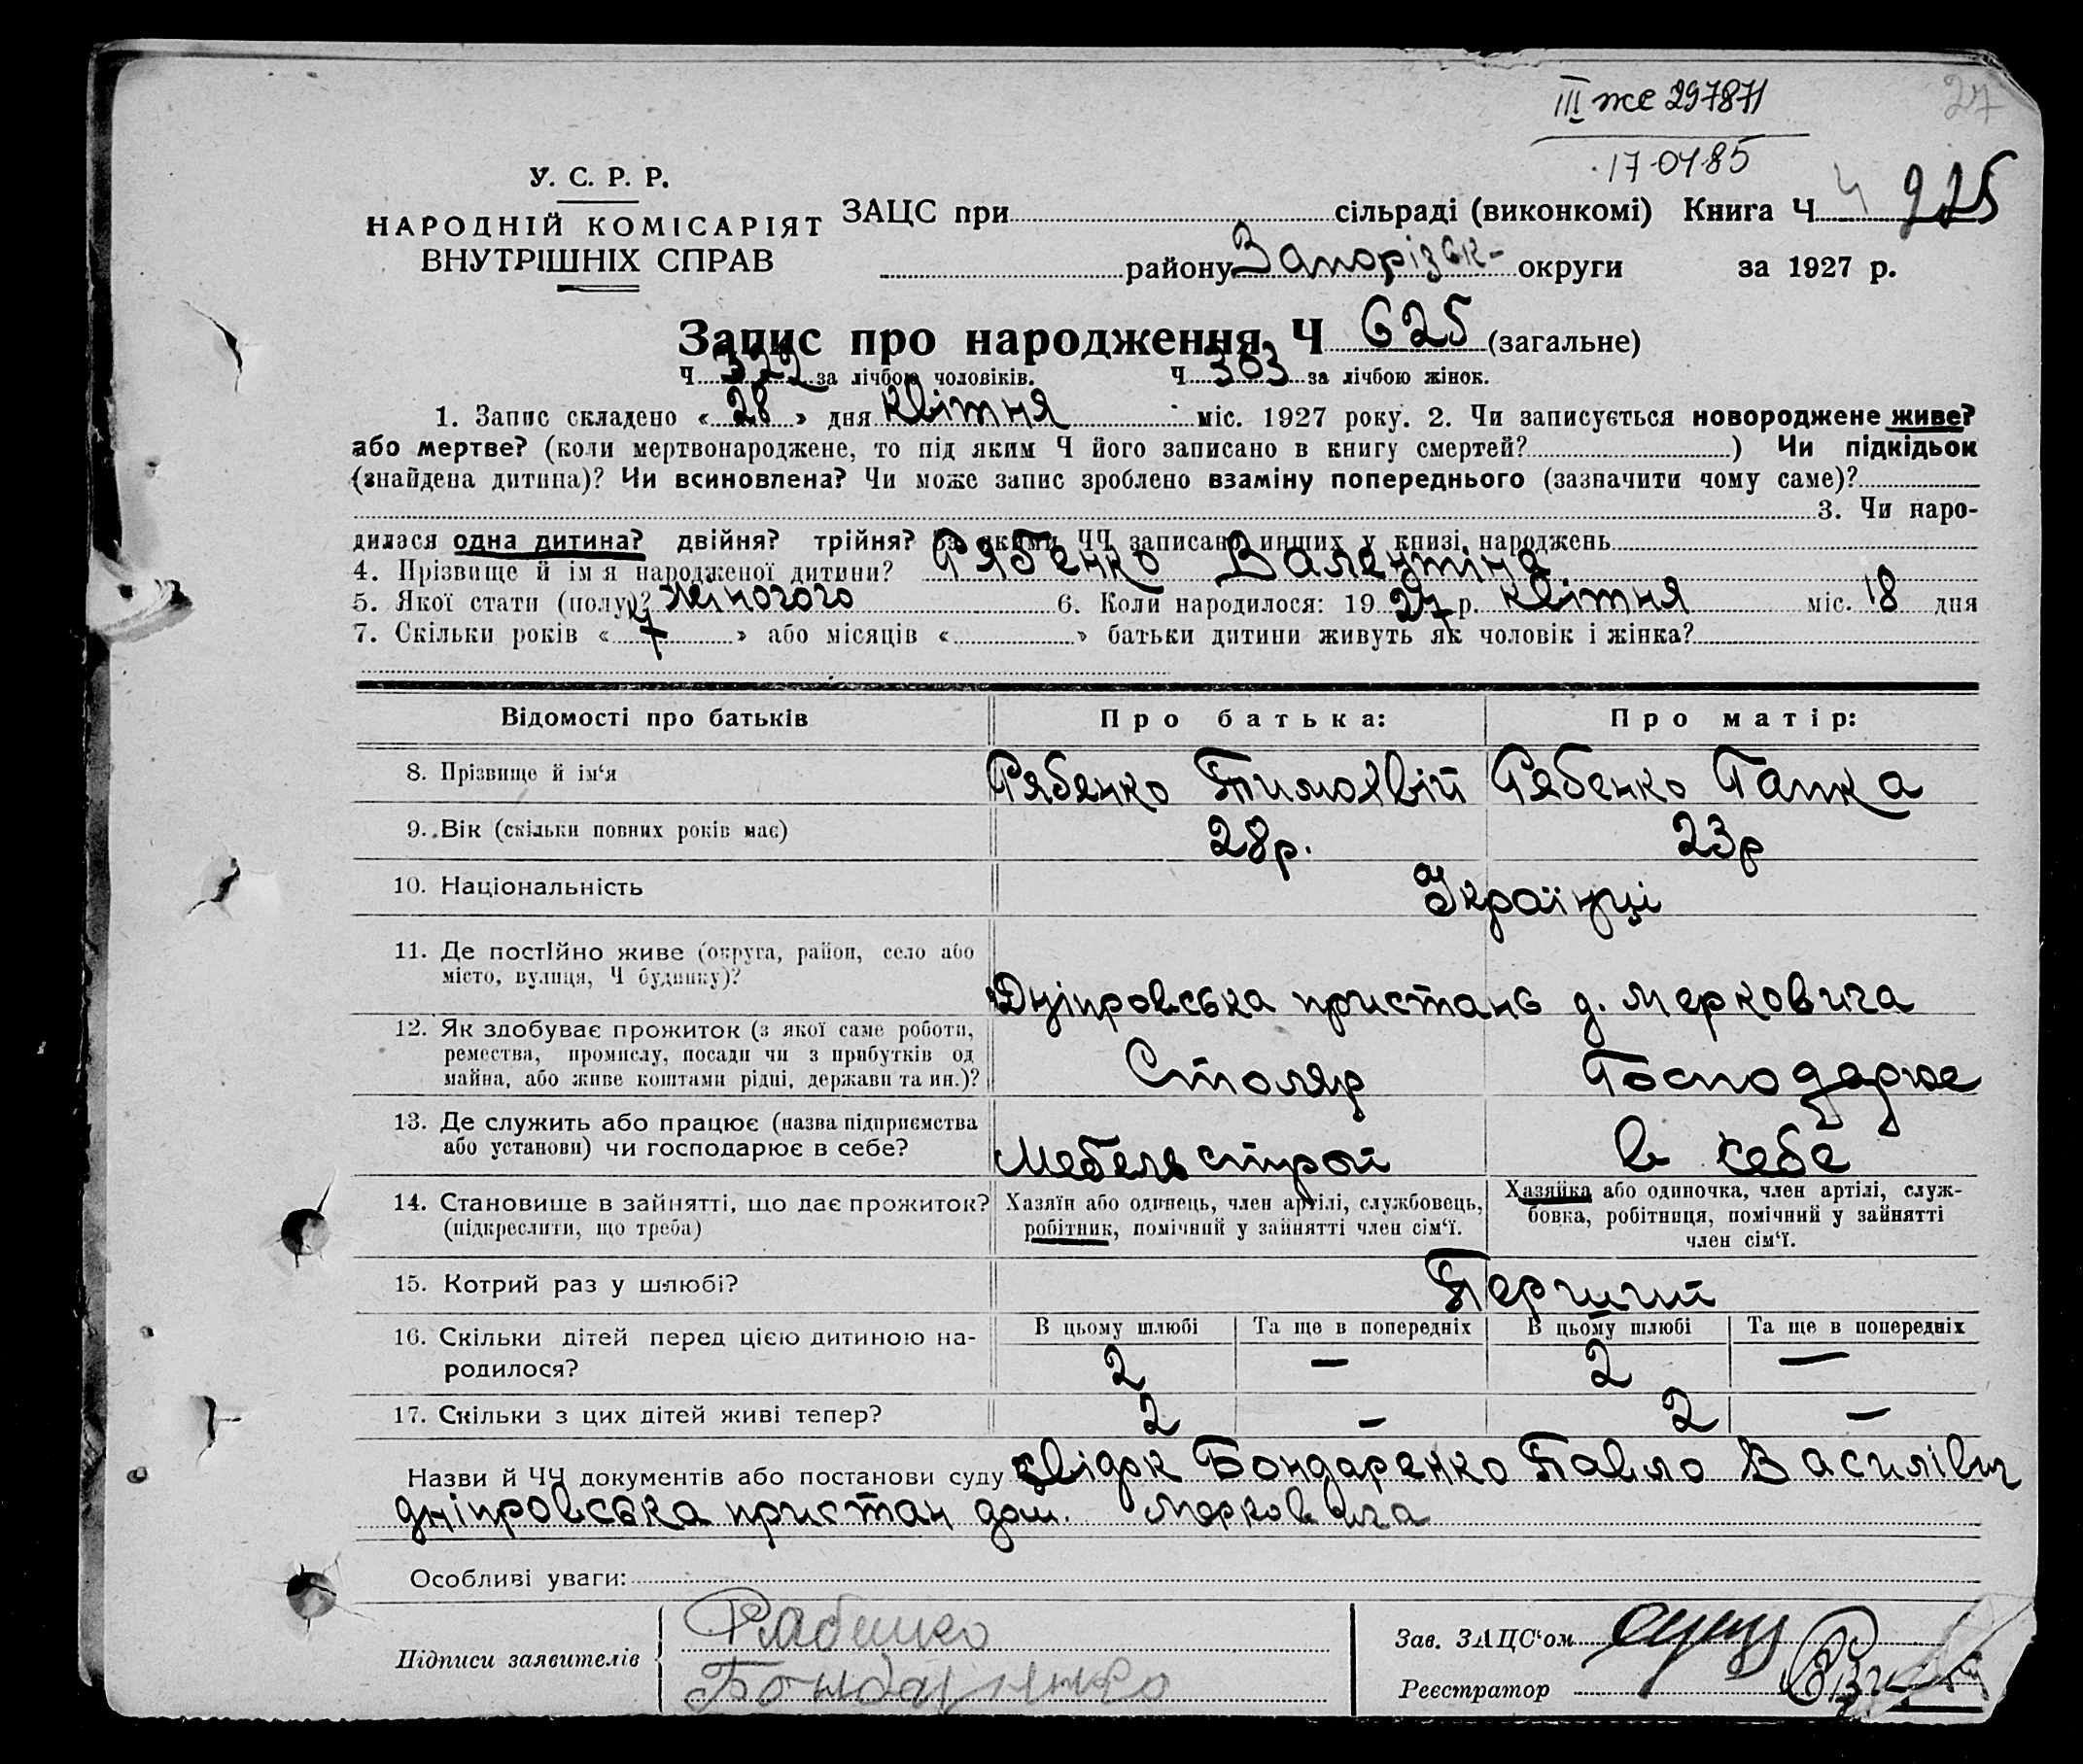 III же 297871
27
17-04 85
У. С. Р. Р.
НАРОДНІЙ КОМІСАРІЯТ
ВНУТРІШНІХ СПРАВ
ЗАЦС при сільраді (виконкомі) Книга Ч 4 225
району Запорізьк- округи за 1927 р.
Запис про народження Ч 625 (загальне)
Ч 322 за лічбою чоловіків. Ч 303 за лічбою жінок.
1. Запис складено «28» дня квітня міс. 1927 року. 2. Чи записується новороджене живе?
або мертве? (коли мертвонароджене, то під яким Ч його записано в книгу смертей? ) Чи підкідьок
(знайдена дитина)? Чи всиновлена? Чи може запис зроблено взаміну попереднього (зазначити чому саме)?
3. Чи наро-
дилася одна дитина? двійня? трійня? За якими ЧЧ записано инших у книзі народжень
4. Прізвище й ім'я народженої дитини? Рябенко Валентіна
5. Якої стати (полу)? жіночого 6. Коли народилося: 1927 р. квітня міс. 18 дня
7. Скільки років «7» або місяців « » батьки дитини живуть як чоловік і жінка?
Відомості про батьків Про батька: Про матір:
8. Прізвище й ім'я Рябенко Тимохвій Рябенко Ганка
9. Вік (скільки повних років має) 28р. 23р
10. Національність Українці
11. Де постійно живе (округа, район, село або
місто, вулиця, Ч будинку)? Дніпровська пристань д. Мерковича
12. Як здобуває прожиток (з якої саме роботи,
ремества, промислу, посади чи з прибутків од
майна, або живе коштами рідні, держави та ин.)? Столяр Господарює
13. Де служить або працює (назва підприємства
або установи) чи господарює в себе? Мебельстрой в себе
14. Становище в зайнятті, що дає прожиток?
(підкреслити, що треба)
Хазяїн або одинець, член артілі, службовець,
робітник, помічний у зайнятті член сім'ї.
Хазяйка або одиночка, член артілі, служ-
бовка, робітниця, помічний у зайнятті
член сім'ї.
15. Котрий раз у шлюбі? Перший
16. Скільки дітей перед цією дитиною на-
родилося?
В цьому шлюбі Та ще в попередніх В цьому шлюбі Та ще в попередніх
2 — 2 —
17. Скільки з цих дітей живі тепер? 2 — 2 —
Назви й ЧЧ документів або постанови суду свідок Бондаренко Павло Василівич
дніпровська пристан дом. Мерковича
Особливі уваги:
Підписи заявителів
Рябенко
Бондаренко
Зав. ЗАЦС'ом
Реєстратор